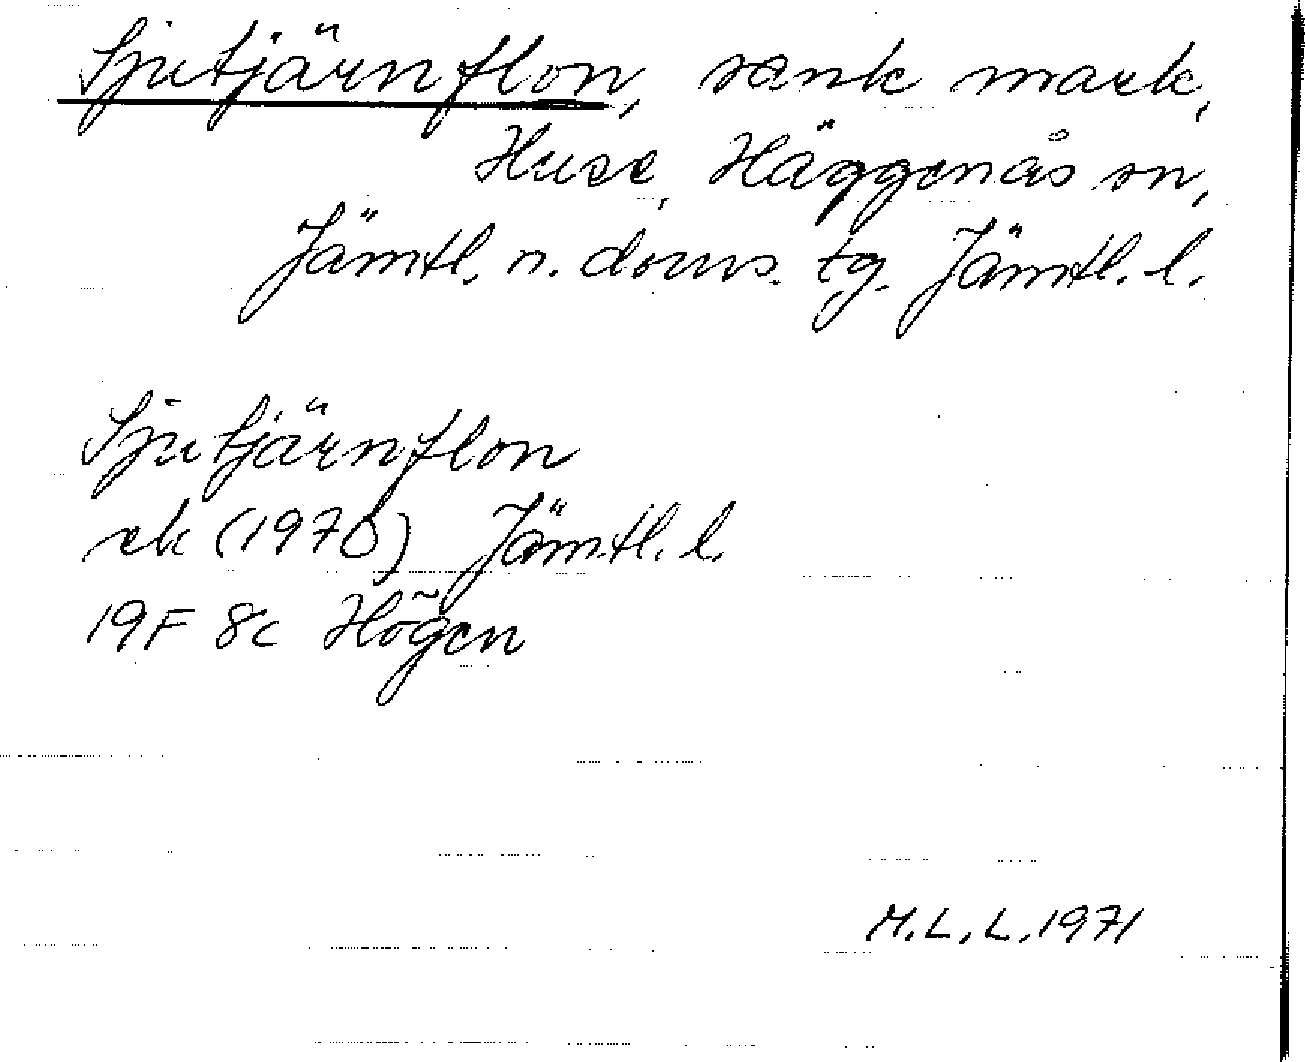 Sjutjärnflon, sank mark,
Huse, Häggenås sn,
Jämtl. n. doms. tg. Jämtl. l.
Sjutjärnflon
ek (1970) Jämtl. l.
19F 8c Högen
M.L.L. 1971